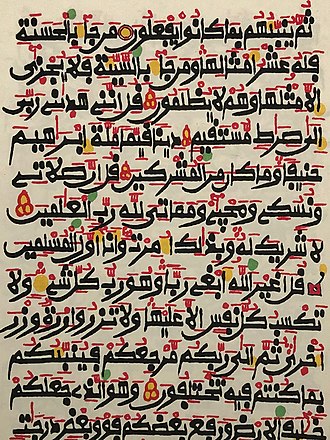 ثم ينبئهم بما كانوا يفعلون من جاء بالحسنة
فله عشر أمثالها ومن جاء بالسيئة فلا يجزى
إلا مثلها وهم لا يظلمون قل إنني هداني ربي
إلى صراط مستقيم دينا قيما ملة إبراهيم
حنيفا وما كان من المشركين قل إن صلاتي
ونسكي ومحياي ومماتي لله رب العلمين
لا شريك له وبذلك أمرت وأنا أول المسلمين
قل أغير الله أبغي ربا وهو رب كل شيء ولا
تكسب كل نفس إلا عليها ولا تزر وازرة وزر
أخرى ثم إلى ربكم مرجعكم فينبئكم
بما كنتم فيه تختلفون وهو الذي جعلكم
خلئف الأرض ورفع بعضكم فوق بعض درجت